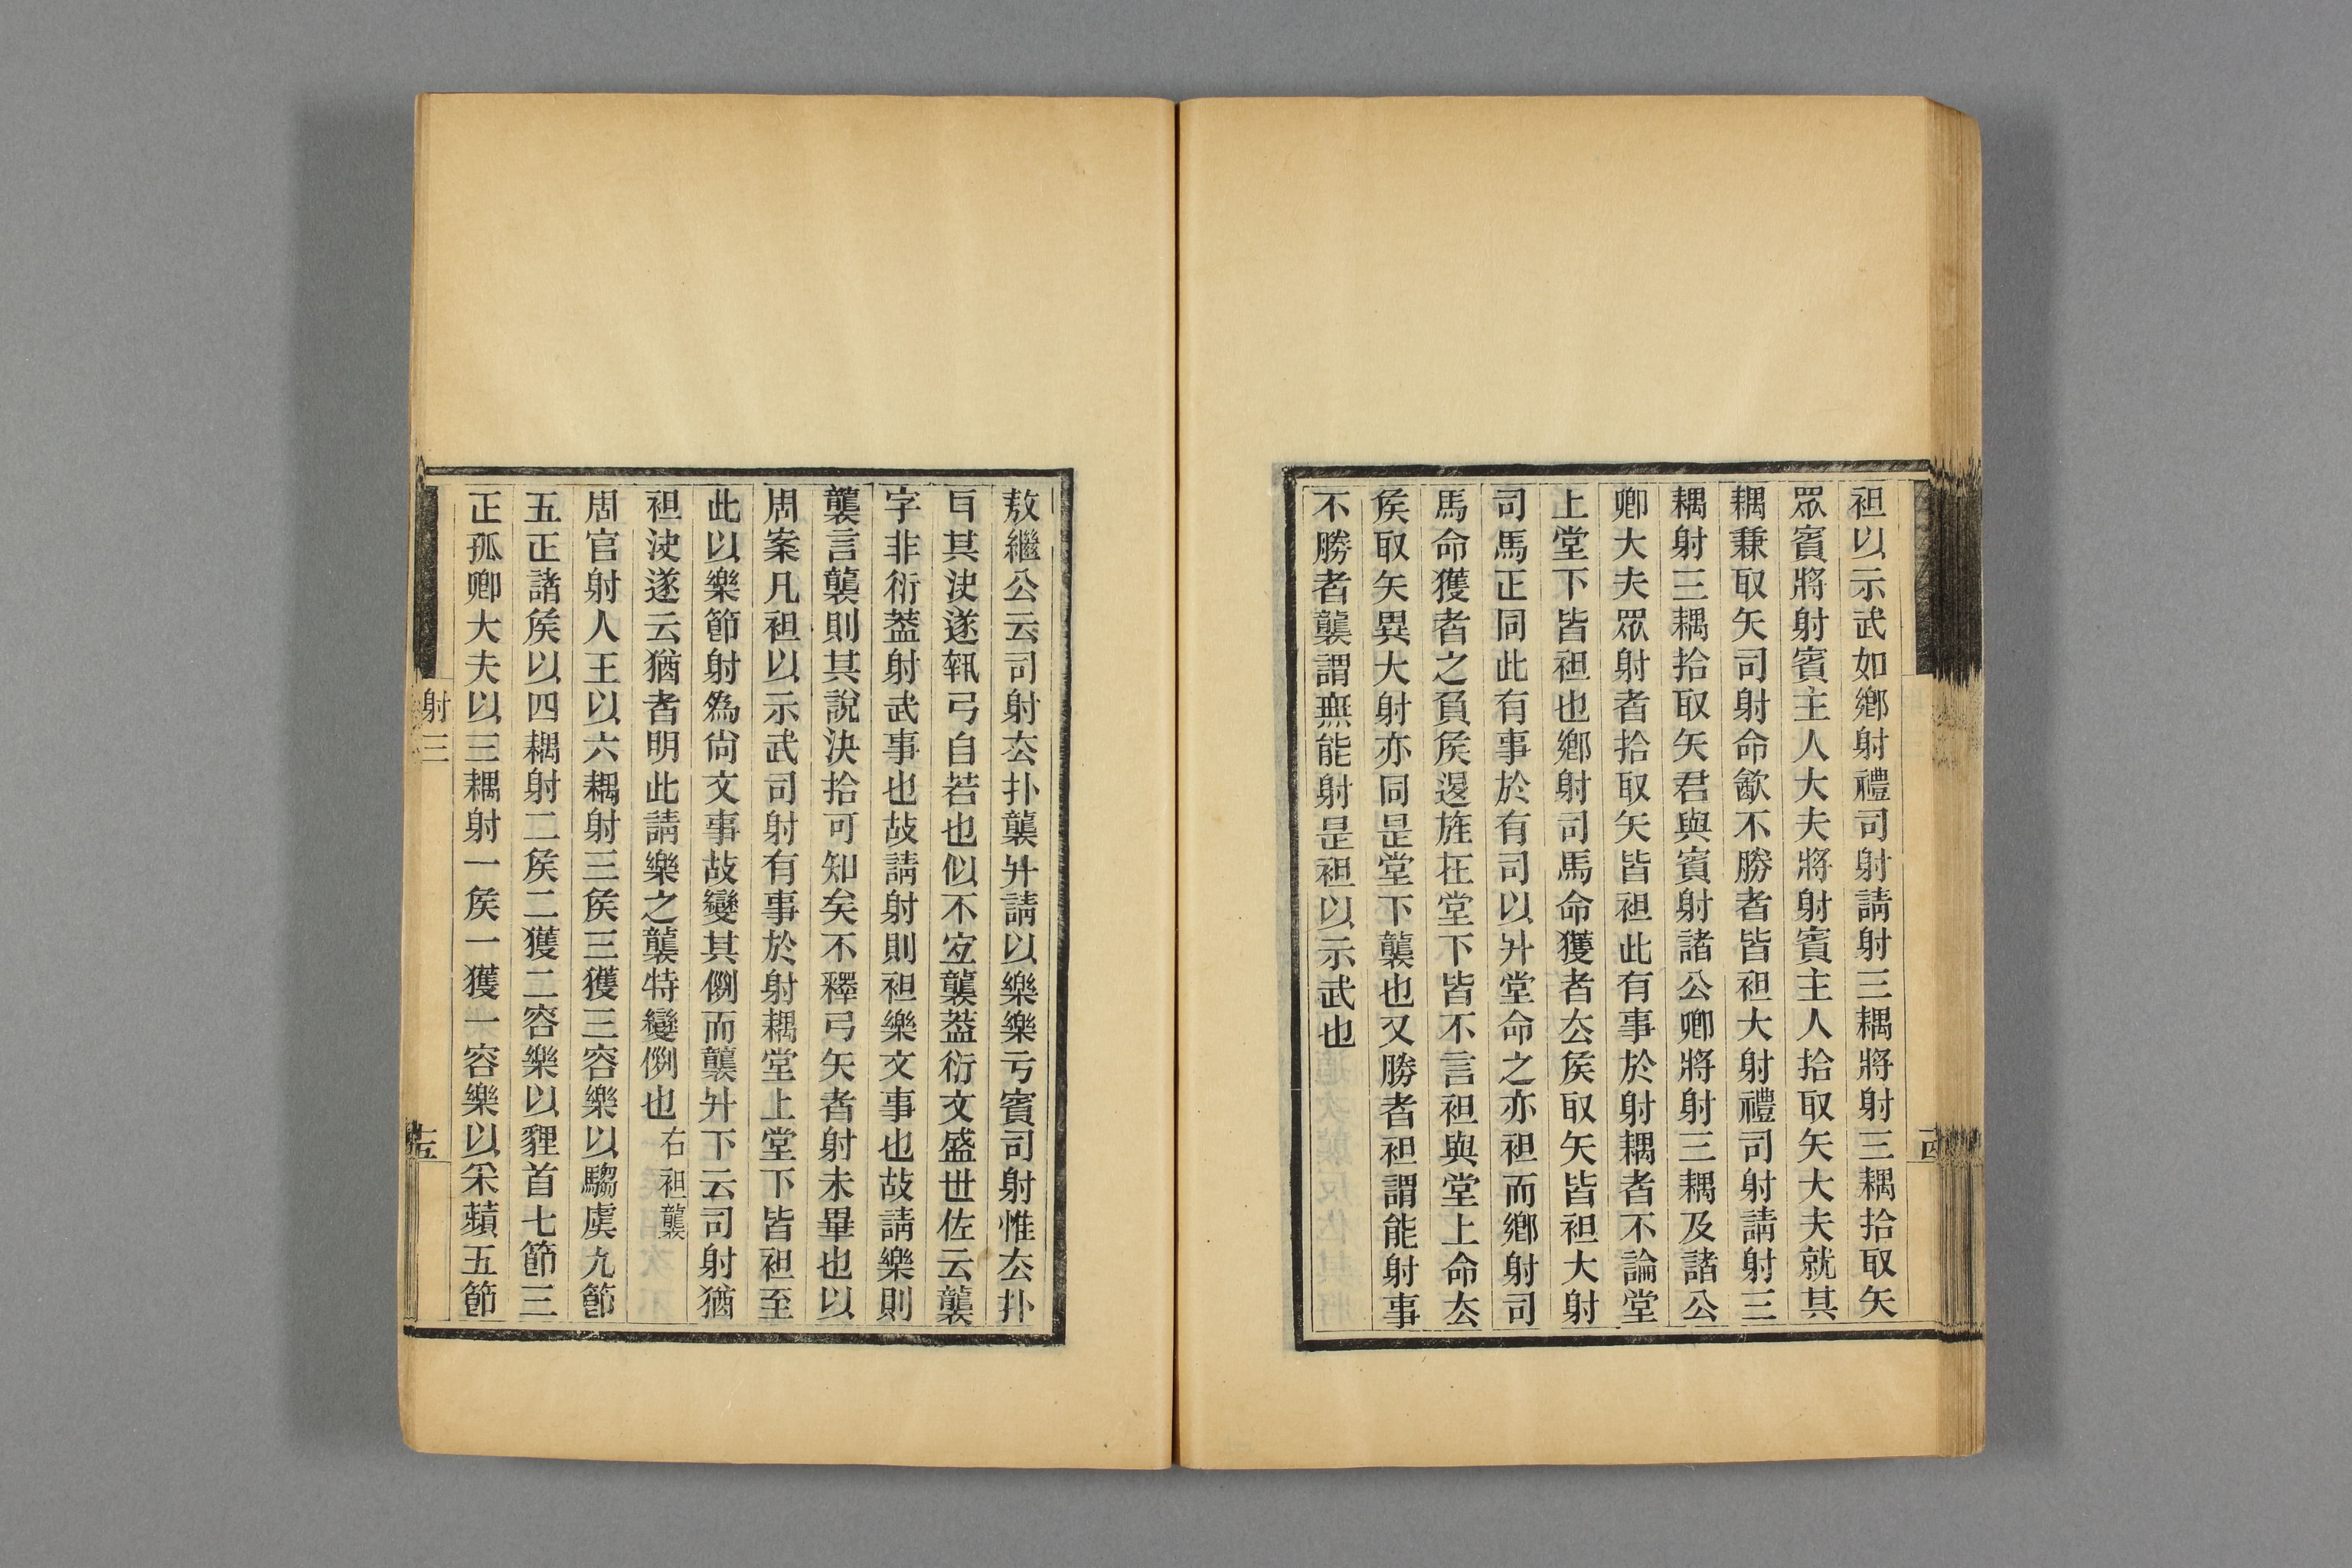 袒以示武如鄉射禮司射請射三耦將射三耦拾取矢
眾賓將射賓主人大夫將射賓主人拾取矢大夫就其
耦兼取矢司射命㱃不勝者皆袒大射禮司射請射三
耦射三耦拾取矢君與賓射諸公卿將射三耦及諸公
卿大夫眾射者拾取矢皆袒此有事於射耦者不論堂
上堂下皆袒也鄉射司馬命獲者厺矦取矢皆袒大射
司馬正同此有事於有司以升堂命之亦袒而鄉射司
馬命獲者之負矦遝旌在堂下皆不言袒與堂上命厺
矦取矢異大射亦同是堂下襲也又勝者袒謂能射事
不勝者襲謂無能射是袒以示武也
敖繼公云司射厺扑襲升請以樂樂亏賓司射惟厺扑
㠯其決遂執弓自若也似不宐襲葢衍文盛世佐云襲
字非衍葢射武事也故請射則袒樂文事也故請樂則
襲言襲則其說決拾可知矣不釋弓矢者射未畢也以
周案凡袒以示武司射有事於射耦堂上堂下皆袒至
此以樂節射爲尚文事故變其例而襲升下云司射猶
袒決遂云猶者明此請樂之襲特變例也 右袒襲
周官射人王以六耦射三矦三獲三容樂以騶虞九節
五正諸矦以四耦射二矦二獲二容樂以貍首七節三
正孤卿大夫以三耦射一矦一獲一容樂以采蘋五節
射三
十五